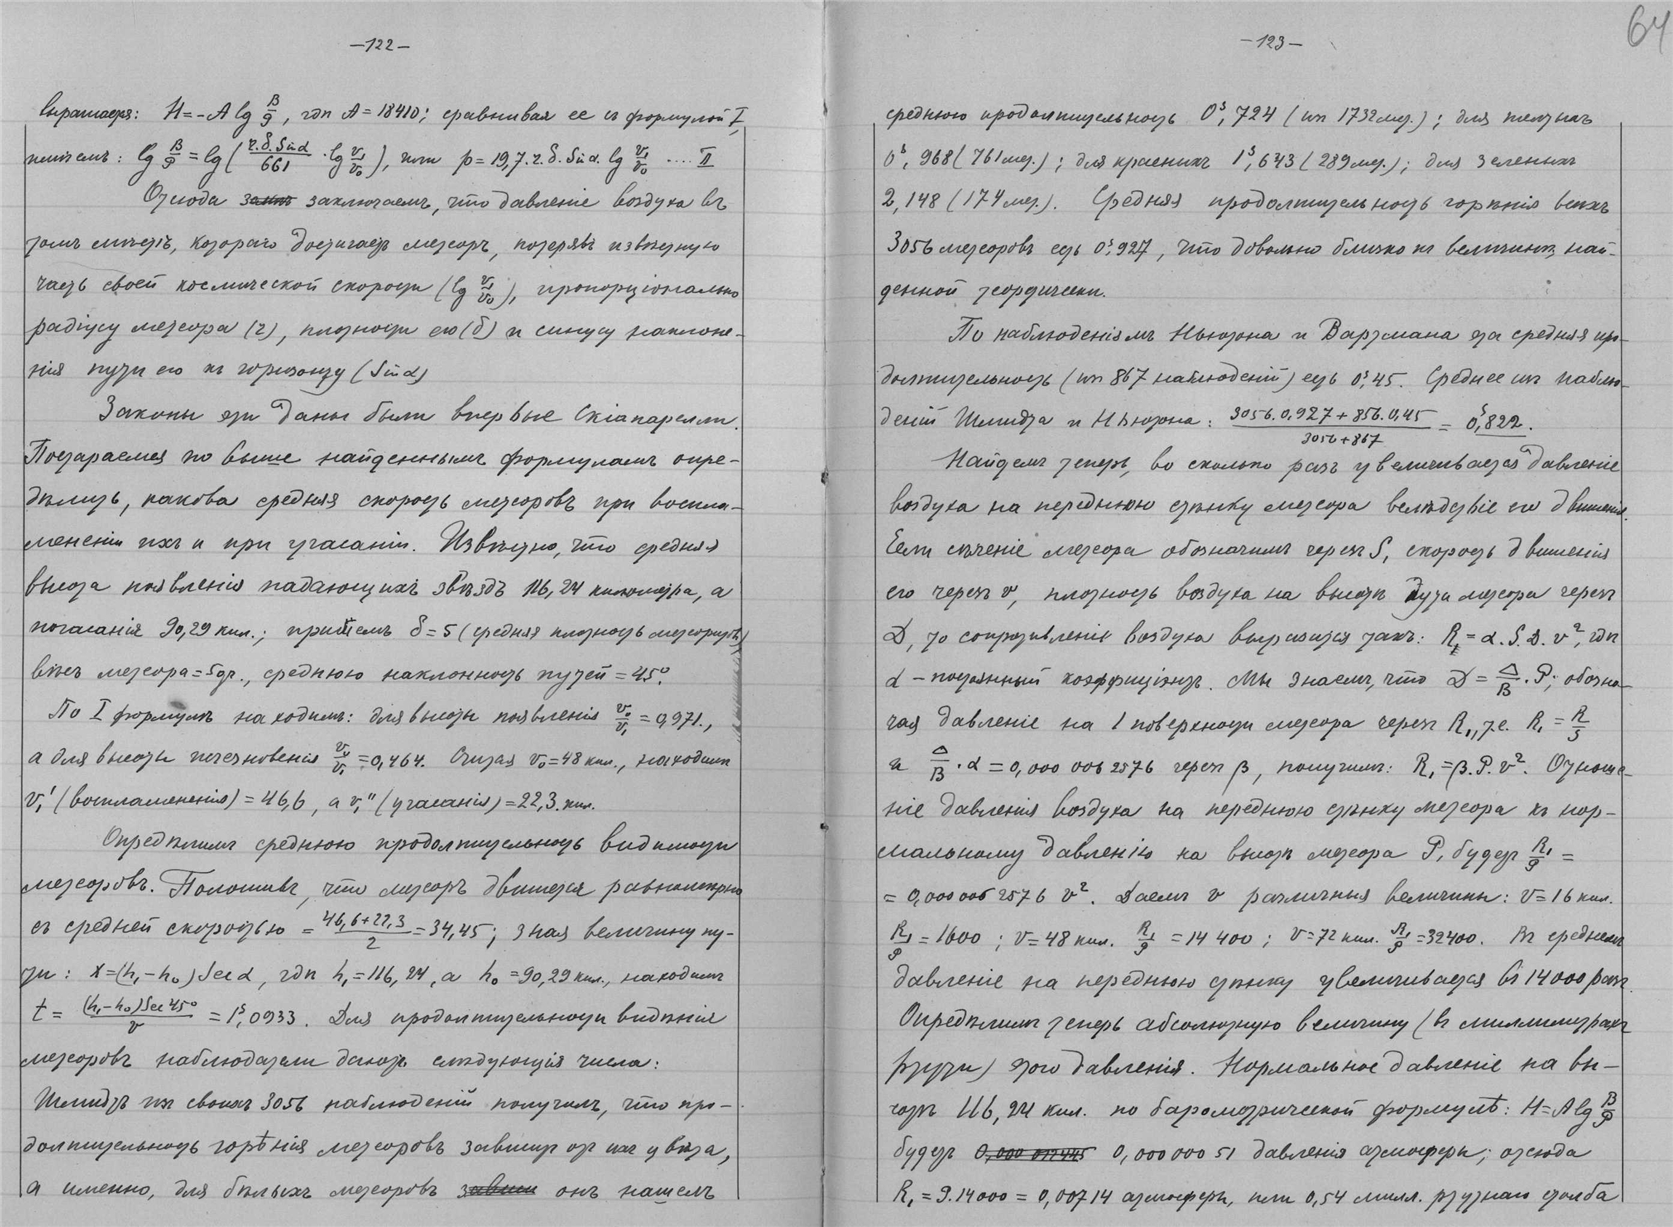 —122—
выражается: H = -A lg B/P, гдѣ A = 18410; сравнивая ее съ формулой I,
имѣемъ: lg B/P = lg (r.δ.Sin α/661 · lg v₁/v₀), или p = 19,7. r. δ. Sin α. lg v₁/v₀ .... II
Отсюда ~~зак~~ заключаемъ, что давленіе воздуха въ
томъ мѣстѣ, котораго достигаетъ метеоръ, потерявъ извѣстную
часть своей космической скорости (lg v₁/v₀), пропорціонально
радіусу метеора (r), плотности его (δ) и синусу наклоне-
нія пути его къ горизонту (Sin α)
Законы эти даны были впервые Скіапарелли.
Постараемся по выше найденнымъ формуламъ опре-
дѣлить, какова средняя скорость метеоровъ при воспла-
мененіи ихъ и при угасаніи. Извѣстно, что средняя
высота появленія падающихъ звѣздъ 116,24 километра, а
погасанія 90,29 кил.; примемъ δ = 5 (средняя плотность метеоритовъ)
вѣсъ метеора = 5 гр., среднюю наклонность путей = 45°.
По I формулѣ находимъ: для высоты появленія v₀/v₁ = 0,971.,
а для высоты исчезновенія v₀/v₁ = 0,464. Считая v₀ = 48 кил., находимъ
v₁' (воспламененія) = 46,6, а v₁'' (угасанія) = 22,3. кил.
Опредѣлимъ среднюю продолжительность видимости
метеоровъ. Положивъ, что метеоръ движется равномѣрно
съ средней скоростью = 46,6+22,3/2 = 34,45; зная величину пу-
ти: x = (h₁ - h₀) Sec α, гдѣ h₁ = 116,24, а h₀ = 90,29 кил., находимъ
t = (h₁ - h₀) Sec 45°/v = 1ˢ,0933. Для продолжительности видѣнія
метеоровъ наблюдатели даютъ слѣдующія числа:
Шмидтъ изъ своихъ 3056 наблюденій получилъ, что про-
должительность горѣнія метеоровъ зависитъ отъ ихъ цвѣта,
а именно, для бѣлыхъ метеоровъ онъ нашелъ
—123—
64
среднюю продолжительность 0ˢ,724 (изъ 1732 мет.); для желтыхъ
0ˢ,968 (761 мет.); для красныхъ 1ˢ,643 (289 мет.); для зеленыхъ
2,148 (174 мет.). Средняя продолжительность горѣнія всѣхъ
3056 метеоровъ есть 0ˢ,927, что довольно близко къ величинѣ, най-
денной теоретически.
По наблюденіямъ Ньютона и Вартмана эта средняя про-
должительность (изъ 867 наблюденій) есть 0ˢ,45. Среднее изъ наблю-
деній Шмидта и Ньютона: 3056.0,927 + 856.0,45/3056+867 = 0ˢ,822.
Найдемъ теперь, во сколько разъ увеличивается давленіе
воздуха на переднюю стѣнку метеора вслѣдствіе его движенія.
Если сѣченіе метеора обозначимъ черезъ S, скорость движенія
его черезъ v, плотность воздуха на высотѣ пути метеора черезъ
D, то сопротивленіе воздуха выразится такъ: R = α. S. D. v², гдѣ
α – постоянный коэффиціэнтъ. Мы знаемъ, что D = Δ/B . P; обозна-
чая давленіе на 1 поверхности метеора черезъ R₁, т.е. R₁ = R/S
и Δ/B . α = 0,000 006 2576 черезъ β, получимъ: R₁ = β. P. v². Отноше-
ніе давленія воздуха на переднюю стѣнку метеора къ нор-
мальному давленію на высотѣ метеора P, будетъ R₁/P =
= 0,000 006 2576 v². Даемъ v различныя величины: v = 16 кил.
R₁/P = 1600; v = 48 кил. R₁/P = 14 400; v = 72 кил. R₁/P = 32400. Въ среднемъ
давленіе на переднюю стѣнку увеличивается въ 14000 разъ.
Опредѣлимъ теперь абсолютную величину (въ миллиметрахъ
ртути) этого давленія. Нормальное давленіе на вы-
сотѣ 116,24 кил. по барометрической формулѣ: H = A lg B/P
будетъ 0,000 000 51 давленія атмосферы; отсюда
R₁ = P. 14000 = 0,00714 атмосферы, или 0,54 милл. ртутнаго столба